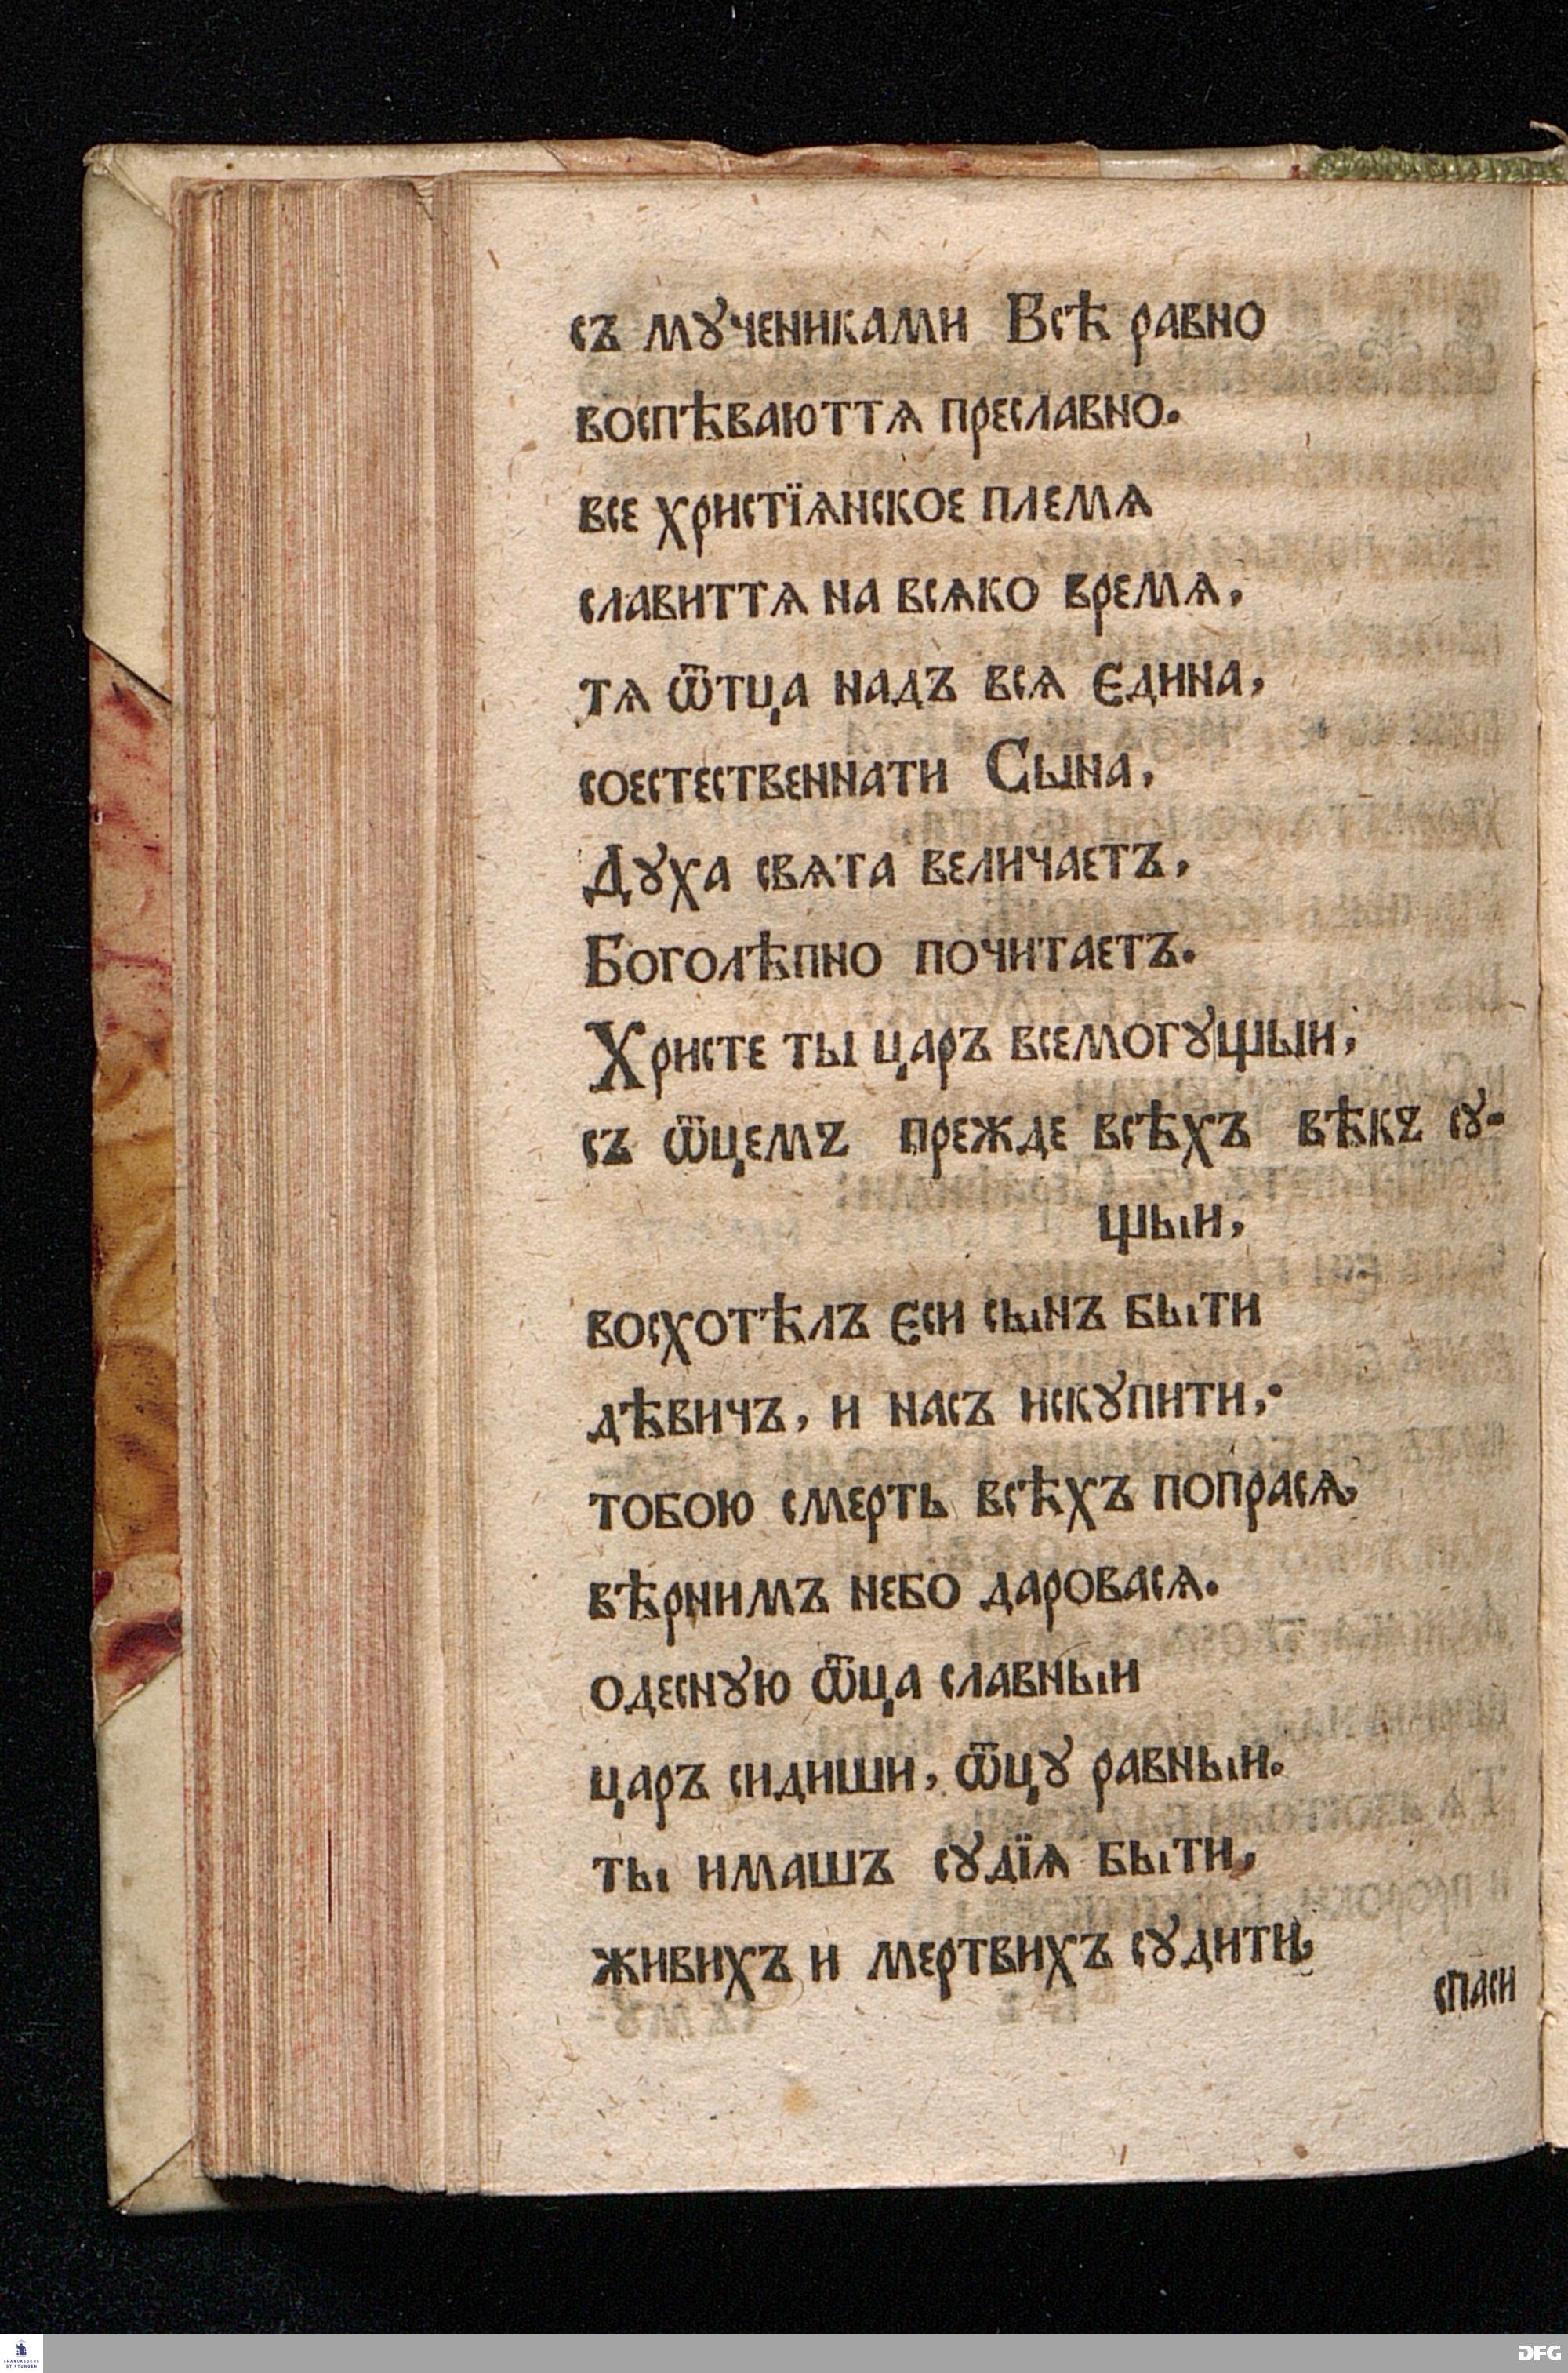 съ мꙋчениками Всѣ равно
воспѣваюттѧ преславно.
все христїѧнское племѧ
славиттѧ на всѧко времѧ,
тѧ ѿтца надъ всѧ єдина,
соестественнати Сына,
Дꙋха свѧта величаетъ,
Боголѣпно почитаетъ.
Христе ты царъ всемогꙋщыи,
съ ѿцемъ прежде всѣхъ вѣкъ сꙋ-
щыи,
восхотѣлъ єси сынъ быти
дѣвичъ, и насъ искꙋпити,·
тобою смерть всѣхъ попрасѧ,
вѣрнимъ небо даровасѧ.
одеснꙋю ѿца славныи
царъ сидиши, ѿцꙋ равныи.
ты имашъ сꙋдїѧ быти,
живихъ и мертвихъ сꙋдити,
спаси
FRANCKESCHE
STIFTUNGEN
DFG